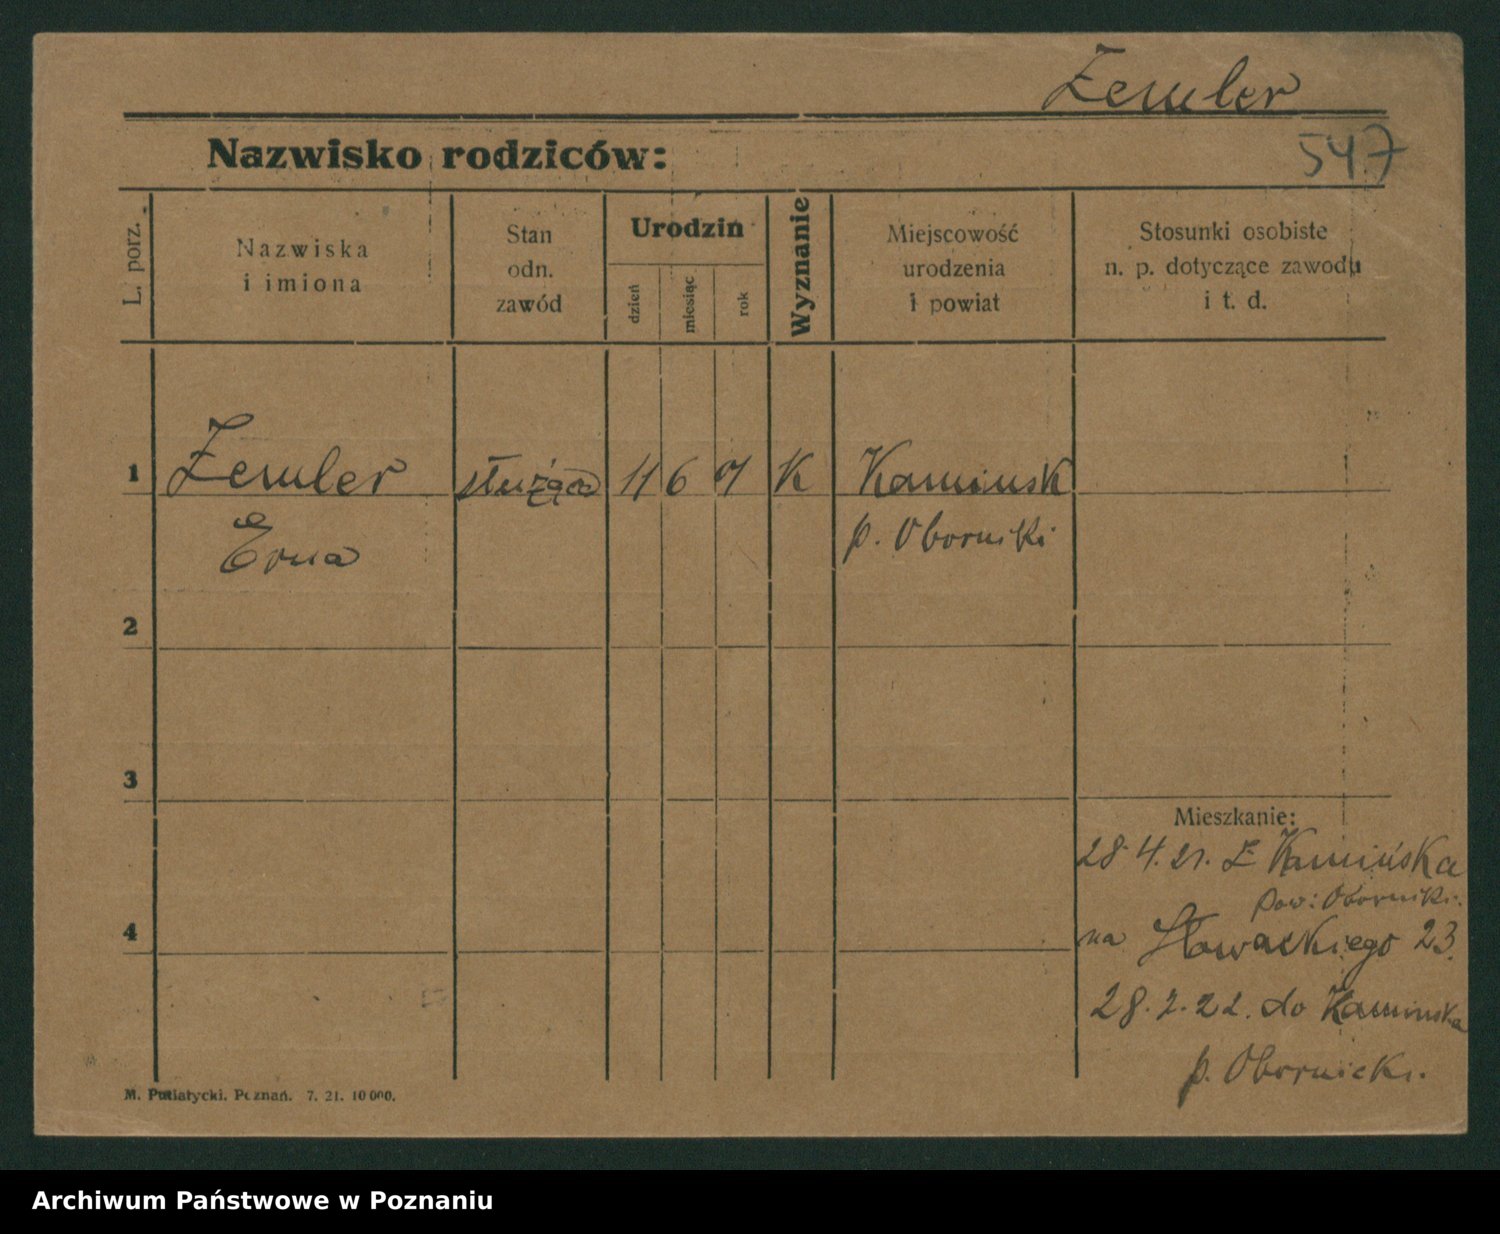 Zemler
547
Nazwisko rodziców:
L. porz.
Nazwiska
i imiona
Stan
odn.
zawód
Urodzin
dzień
miesiąc
rok
Wyznanie
Miejscowość
urodzenia
i powiat
Stosunki osobiste
n. p. dotyczące zawodu
i t. d.
1
Zemler służąca 11 6 07 K Kaminsk
Erna p. Oborniki
2
3
Mieszkanie:
28.4.21. Z Kamińska
pow: Oborniki.
4
na Słowackiego 23.
28.2.22. do Kaminska
p. Obornicki.
M. Putiatycki, Poznań. 7. 21. 10 000.
Archiwum Państwowe w Poznaniu